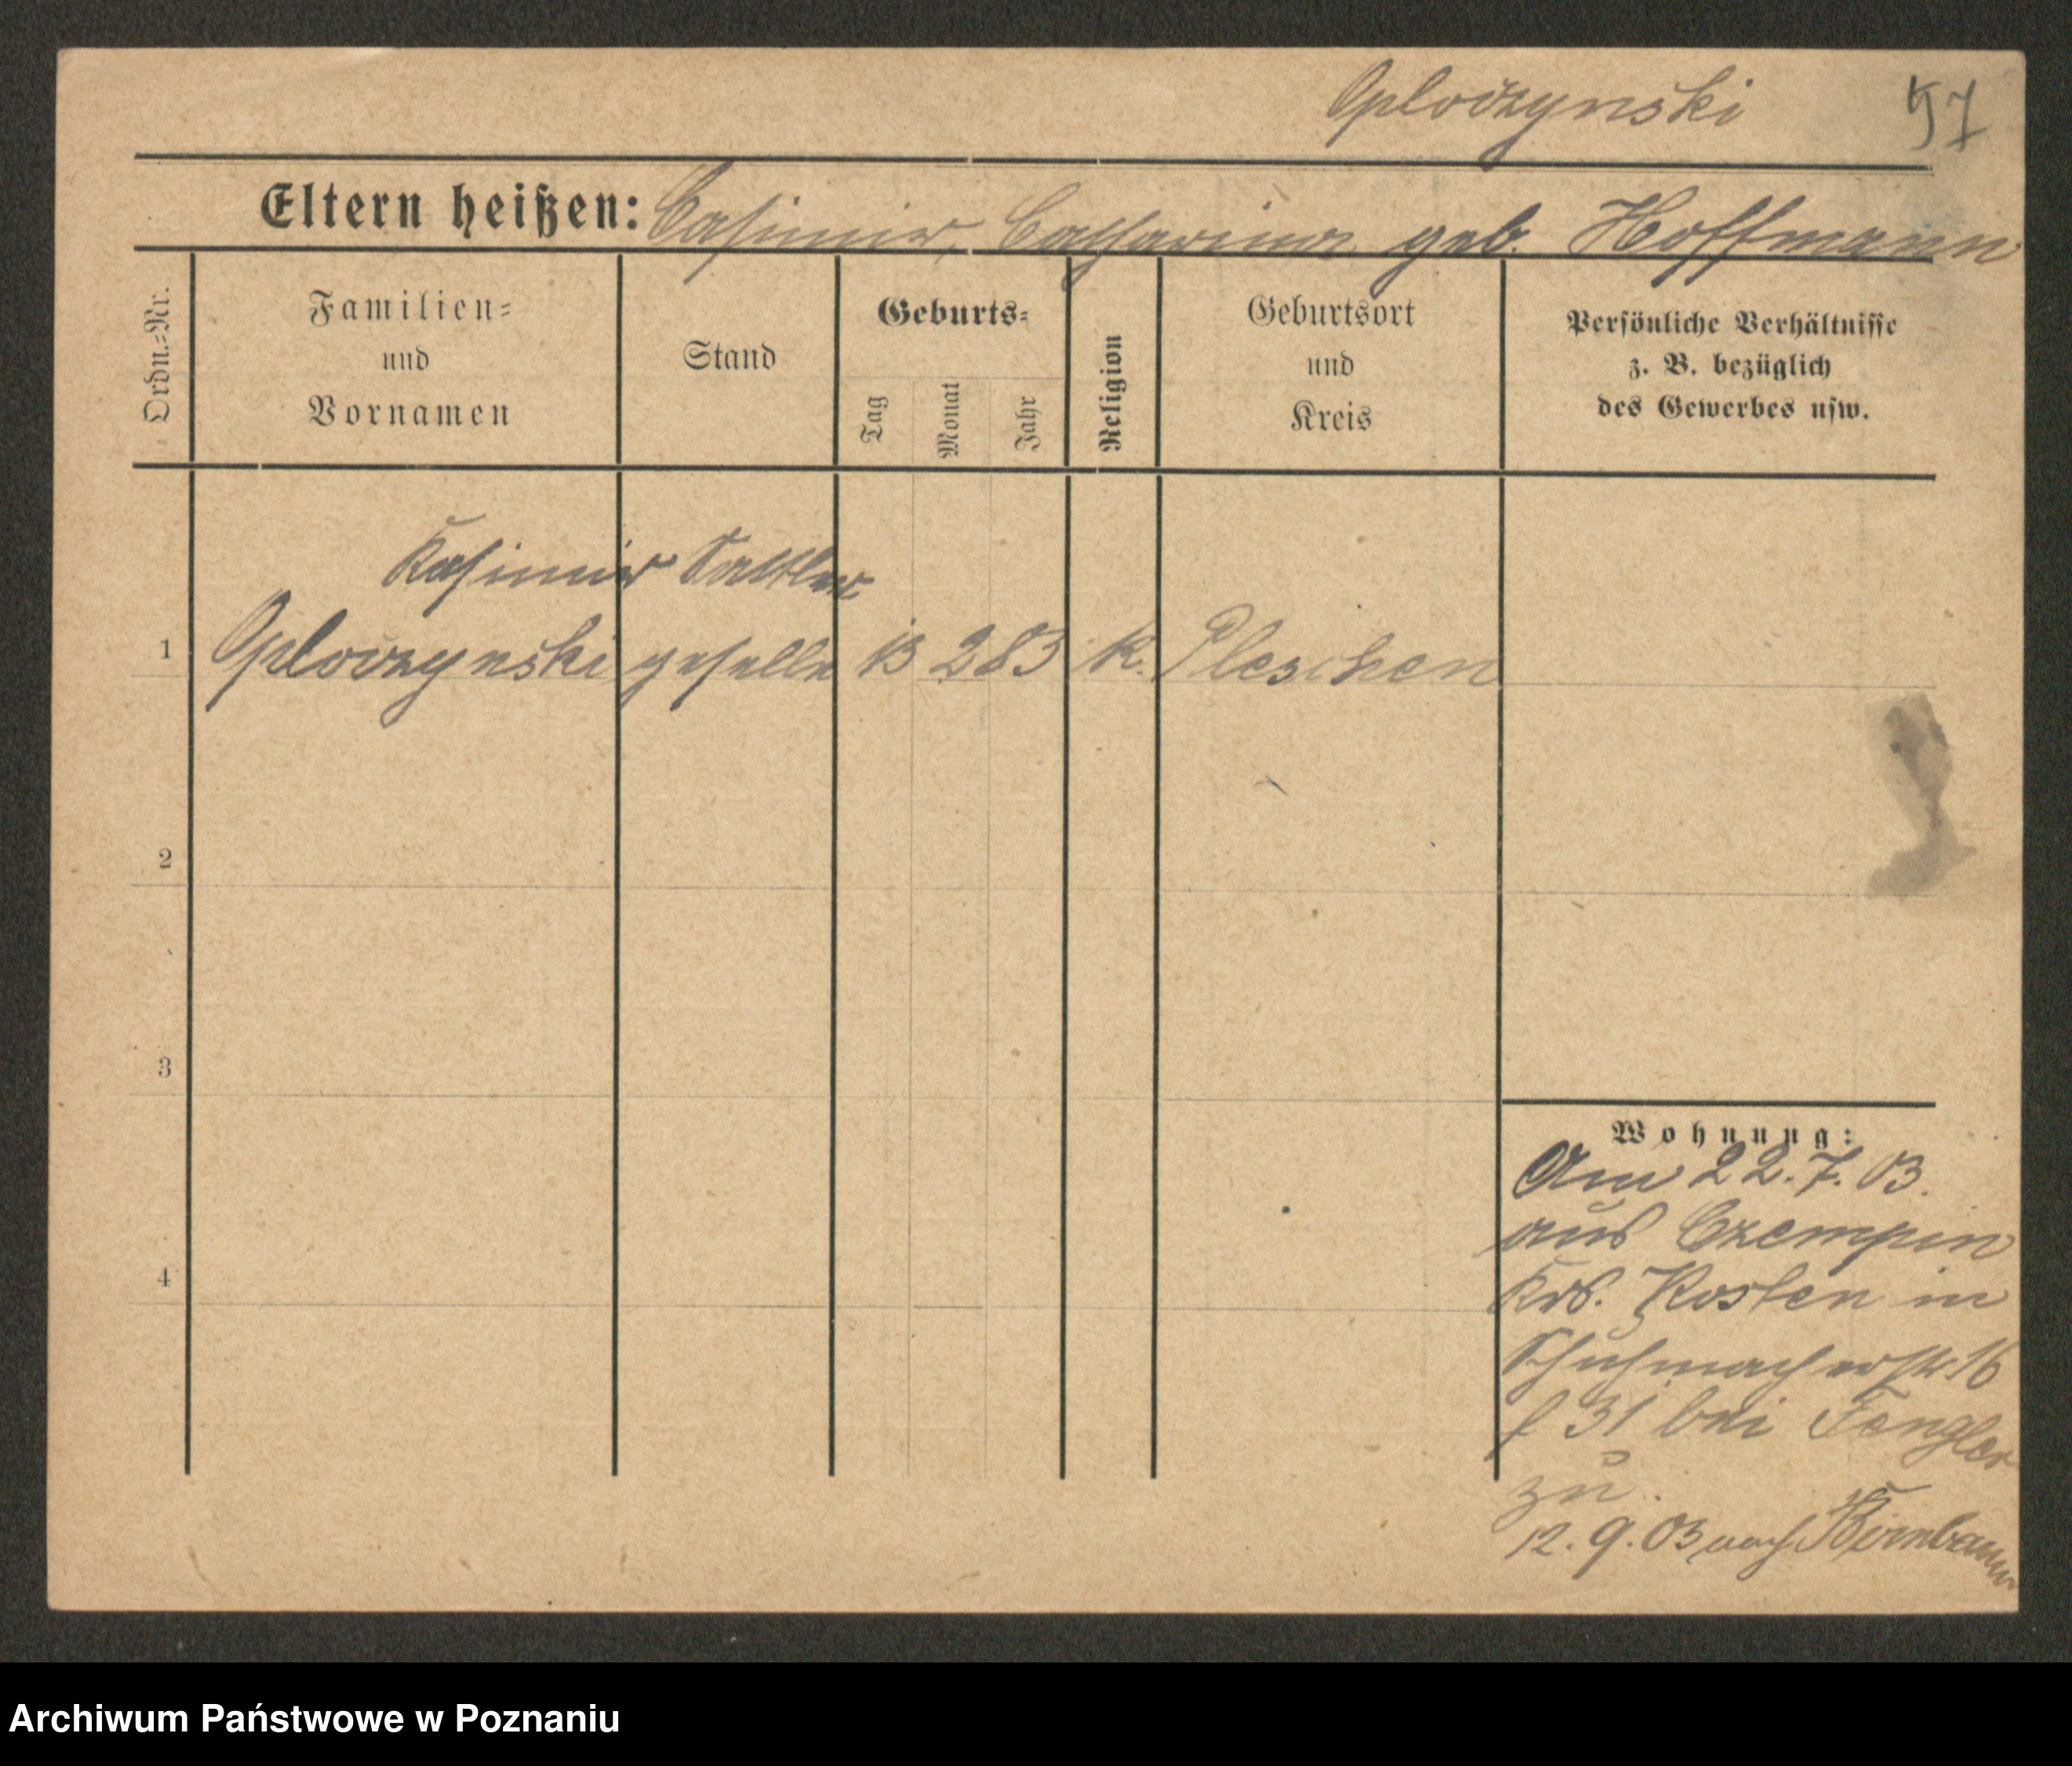 Oploczynski 57
Eltern heißen: Casimir, Catharina geb. Hoffmann
Ordn.=Nr.
Familien=
und
Vornamen
Stand
Geburts=
Tag
Monat
Jahr
Religion
Geburtsort
und
Kreis
Persönliche Verhältnisse
z. B. bezüglich
des Gewerbes usw.
Kasimir Sattler
1 Oploczynski geselle 13 2 83 k. Pleschen
2
3
4
Wohnung:
Am 22.7.03.
aus Czempin
Krs. Kosten in
Schuhmacherstr. 16
f 31 bei Fengler
zu.
12.9.03 nach Birnbaum
Archiwum Państwowe w Poznaniu